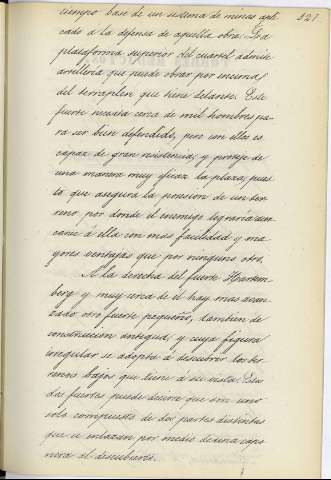 221
tiempo base de un sistema de minas apli-
cado á la defensa de aquella obra. La
plataforma superior del cuartel admite
artilleria que puede obrar por encima
del terraplen que tiene delante. Este
fuerte necesita cerca de mil hombres pa-
ra ser bien defendido, pero con ellos es
capaz de gran resistencia, y protege de
una manera muy eficaz la plaza, pues-
ta que asegura la posesion de un ter-
reno por donde el enemigo lograria acer-
carse á ella con mas facilidad y ma-
yores ventajas que por ninguno otro.
A la derecha del fuerte Hartem-
berg y muy cerca de él hay mas avan-
zado otro fuerte pequeño, tambien de
construccion antigua, y cuya figura
irregular se adopta á descubrir los ter-
renos bajos que tiene á su vista. Estos
dos fuertes puede decirse que son uno
solo compuesto de dos partes distintas
que se enlazan por medio de una capo-
nera al descubierto.